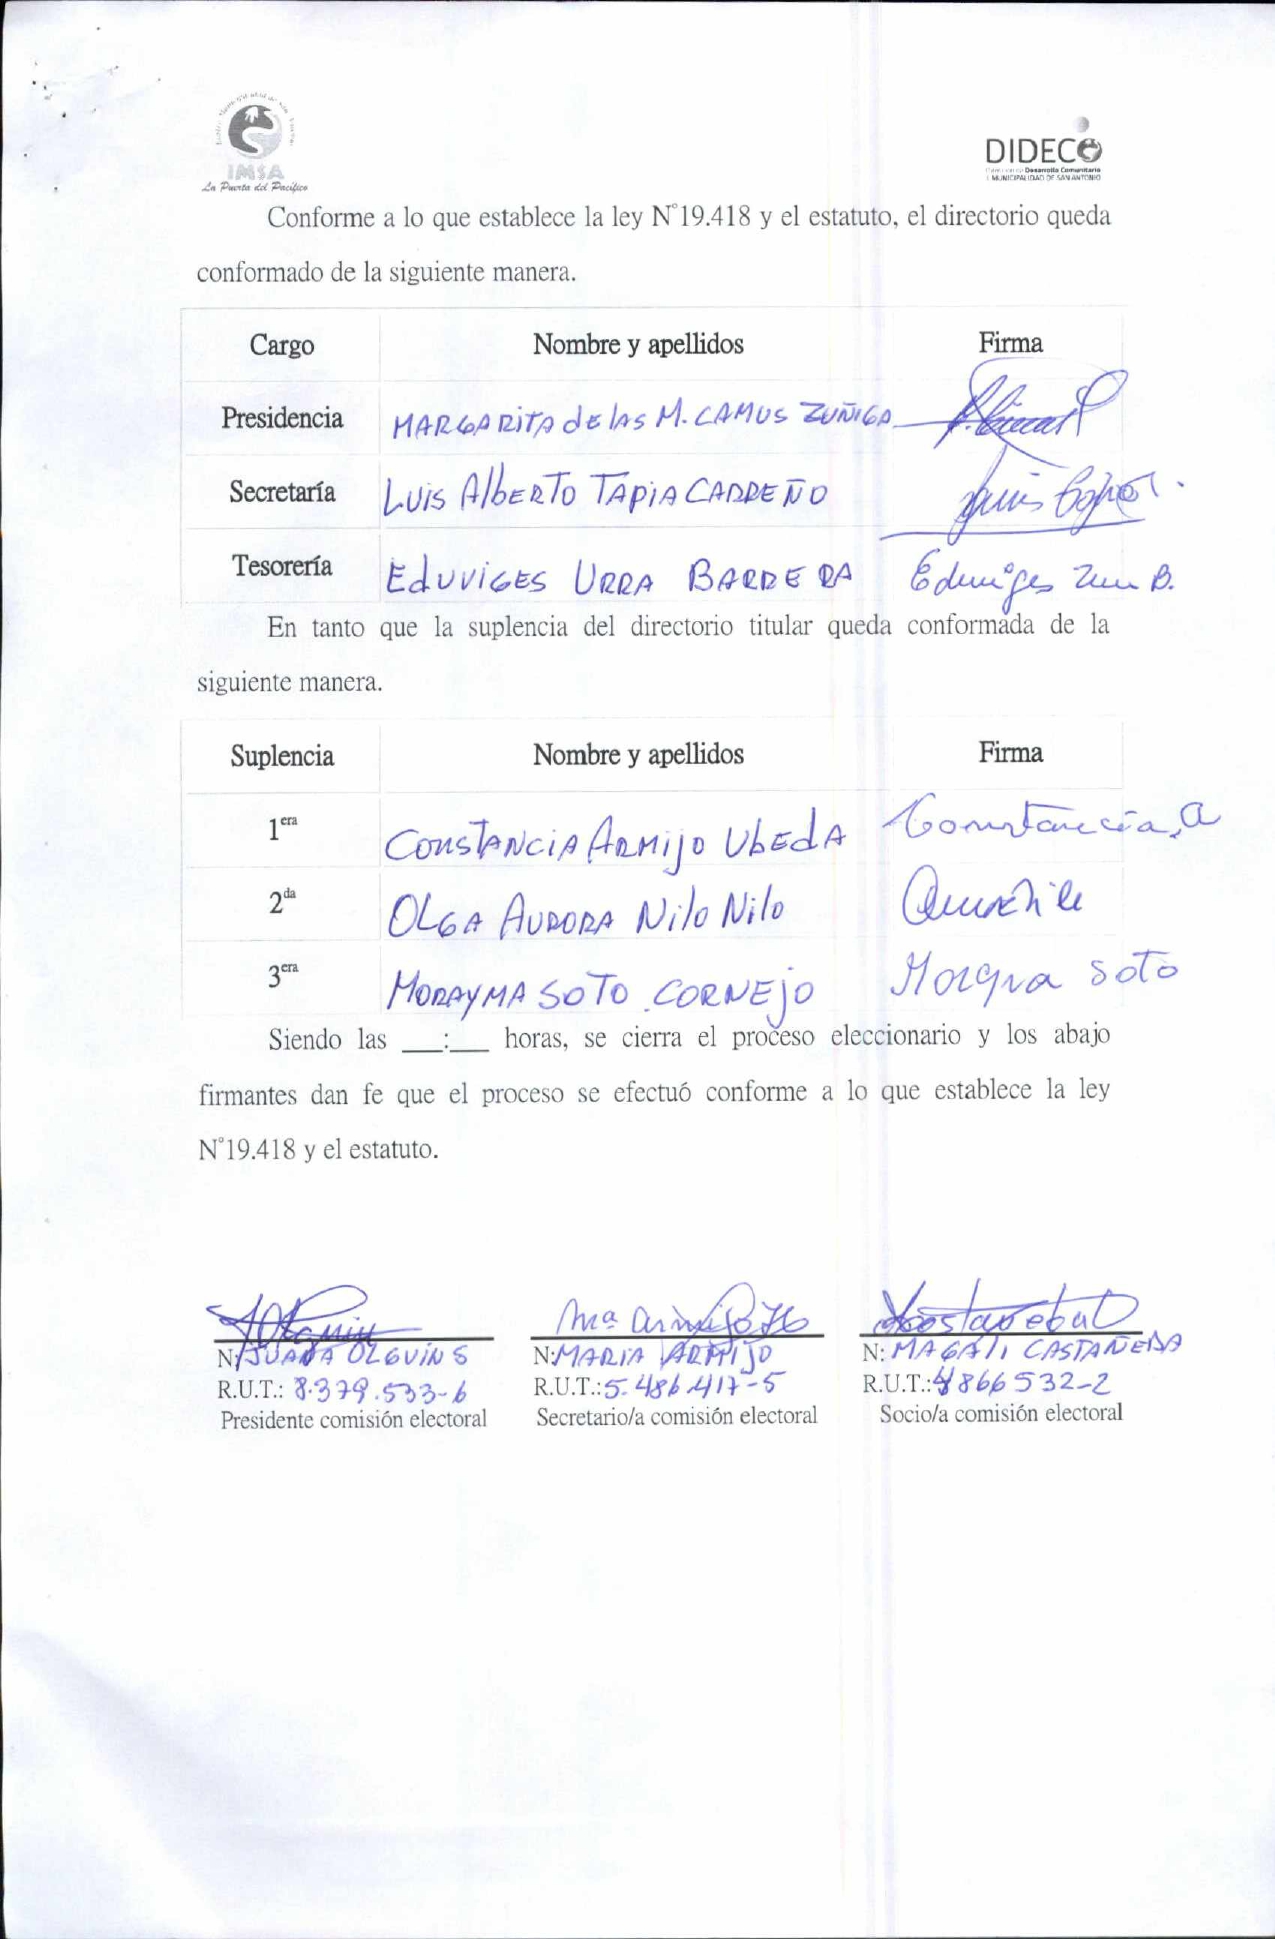 IMSA
La Puerta del Pacífico
DIDECO
Desarrollo Comunitario
I. MUNICIPALIDAD DE SAN ANTONIO
Conforme a lo que establece la ley N°19.418 y el estatuto, el directorio queda
conformado de la siguiente manera.
Cargo Nombre y apellidos Firma
Presidencia MARGARITA de las M. CAMUS ZUÑIGA
Secretaría Luis Alberto Tapia Carreño
Tesorería Eduviges Urra Barrera Eduviges B.
En tanto que la suplencia del directorio titular queda conformada de la
siguiente manera.
Suplencia Nombre y apellidos Firma
1era Constancia Armijo Ubeda Constancia, a
2da Olga Aurora Nilo Nilo
3era Morayma Soto Cornejo Soto
Siendo las ___:___ horas, se cierra el proceso eleccionario y los abajo
firmantes dan fe que el proceso se efectuó conforme a lo que establece la ley
N°19.418 y el estatuto.
Mª Armijo
N: JUANA OLGUIN S N: MARIA ARMIJO N: MAGALI CASTAÑEDA
R.U.T.: 8.379.533-6 R.U.T.: 5.486.417-5 R.U.T.: 4866532-2
Presidente comisión electoral Secretario/a comisión electoral Socio/a comisión electoral